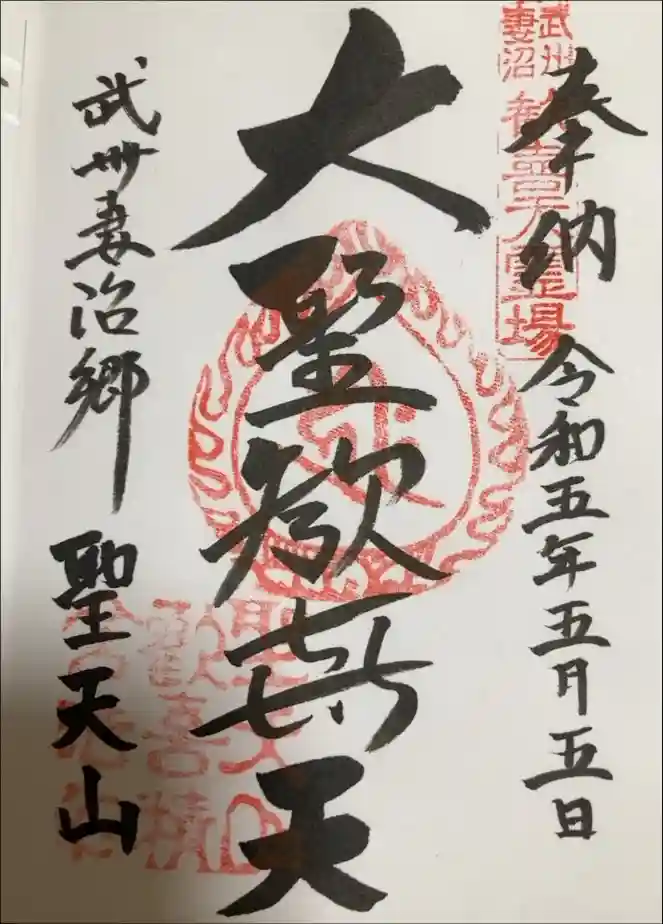 奉納 令和五年五月五日
大聖歓喜天
武州妻沼郷 聖天山
武州
妻沼
歓喜天霊場